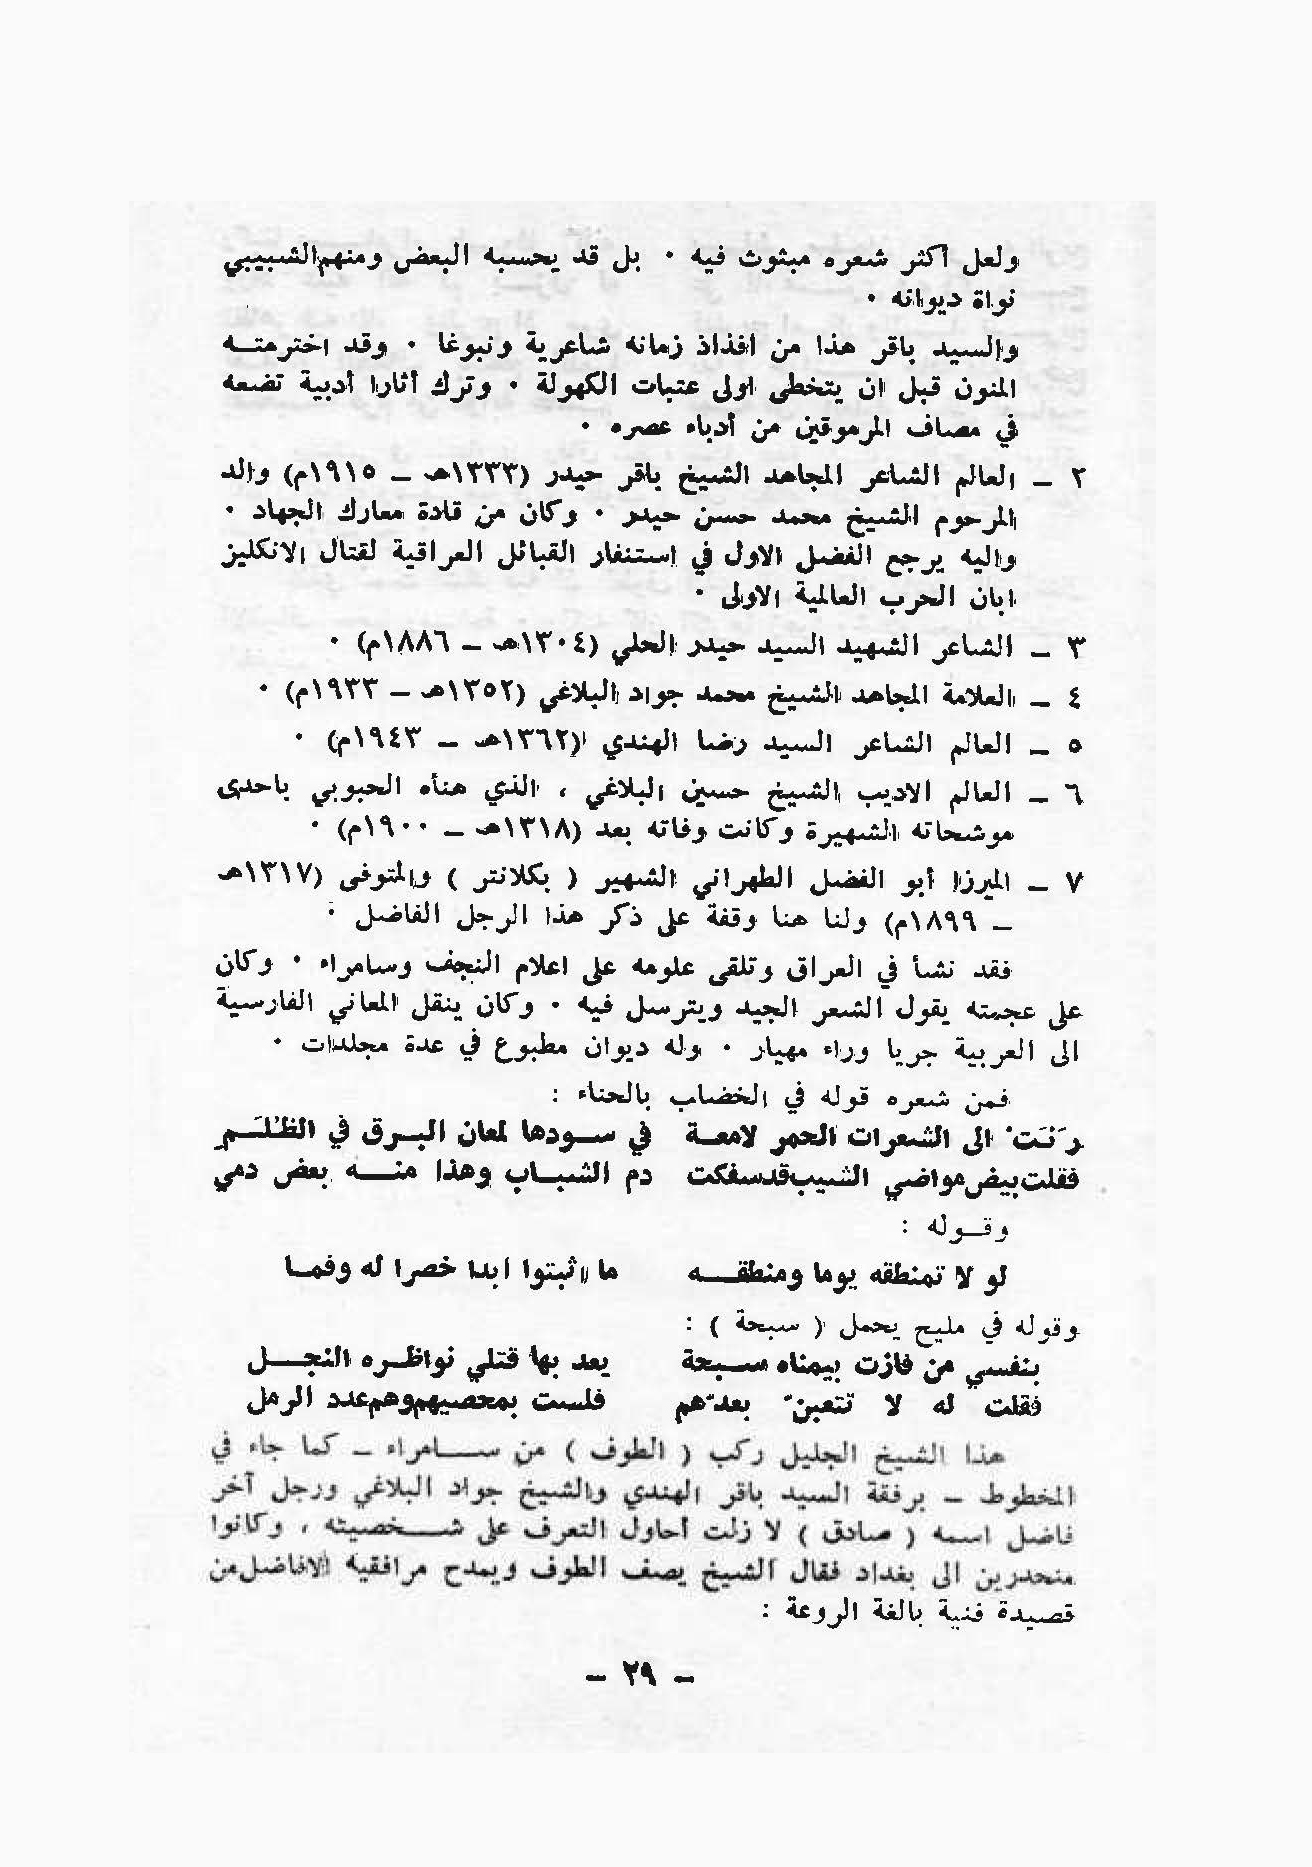 ولعل اكثر شعره مبثوث فيه ٠ بل قد يحسبه البعض ومنهم الشبيبي
نواة ديوانه ٠
والسيد باقر هذا من افذاذ زمانه شاعرية ونبوغا ٠ وقد اخترمتـــه
المنون قبل ان يتخطى اولى عتبات الكهولة ٠ وترك أثارا أدبية تضعه
في مصاف المرموقين من أدباء عصره ٠
٢ – العالم الشاعر المجاهد الشيخ باقر حيدر (١٣٣٣هـ – ١٩١٥م) والد
المرحوم الشيخ محمد حسن حيدر ٠ وكان من قادة معارك الجهاد ٠
واليه يرجع الفضل الاول في استنفار القبائل العراقية لقتال الانكليز
ابان الحرب العالمية الاولى ٠
٣ – الشاعر الشهيد السيد حيدر الحلي (١٣٠٤هـ – ١٨٨٦م) ٠
٤ – العلامة المجاهد الشيخ محمد جواد البلاغي (١٣٥٢هـ – ١٩٣٣م) ٠
٥ – العالم الشاعر السيد رضا الهندي (١٣٦٢هـ – ١٩٤٣م) ٠
٦ – العالم الاديب الشيخ حسين البلاغي ، الذي هنأه الحبوبي باحدى
موشحاته الشهيرة وكانت وفاته بعد (١٣١٨هـ – ١٩٠٠م) ٠
٧ – الميرزا أبو الفضل الطهراني الشهير ( بكلانتر ) والمتوفى (١٣١٧هـ
– ١٨٩٩م) ولنا هنا وقفة على ذكر هذا الرجل الفاضل ٠
فقد نشأ في العراق وتلقى علومه على اعلام النجف وسامراء ٠ وكان
على عجمته يقول الشعر الجيد ويترسل فيه ٠ وكان ينقل المعاني الفارسية
الى العربية جريا وراء مهيار ٠ وله ديوان مطبوع في عدة مجلدات ٠
فمن شعره قوله في الخضاب بالحناء :
رَنَتْ الى الشعرات الحمر لامعـــة في ســودها لمعان البــرق في الظُلَــمِ
فقلت بيض مواضي الشيب قد سفكت دم الشبــاب وهذا منـــه بعض دمي
وقــوله :
لو لا تمنطقه يوما ومنطقـــه ما اثبتوا ابدا خصرا له وفمــا
وقوله في مليح يحمل ( سبحة ) :
بنفسي من فازت بيمناه ســبحة يعد بها قتلي نواظــره النجـــل
فقلت له لا تتعبنّ بعدّهم فلست بمحصيهم وهم عدد الرمل
هذا الشيخ الجليل ركب ( الطوف ) من ســـامراء – كما جاء في
المخطوط – برفقة السيد باقر الهندي والشيخ جواد البلاغي ورجل آخر
فاضل اسمه ( صادق ) لا زلت أحاول التعرف على شـــخصيته ، وكانوا
منحدرين الى بغداد فقال الشيخ يصف الطوف ويمدح مرافقيه الافاضل من
قصيدة فنية بالغة الروعة :
– ٢٩ –